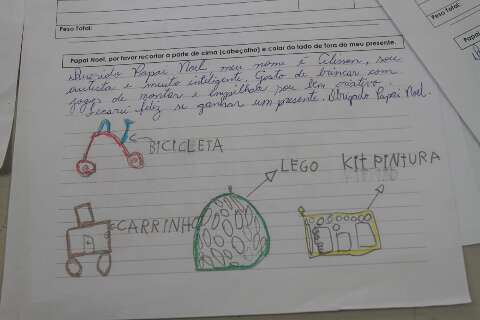 Peso Total:
Papai Noel, por favor recortar a parte de cima (cabeçalho) e colar do lado de fora do meu presente.
Querido Papai Noel meu nome é Alisson, sou
autista e muito inteligente. Gosto de brincar com
jogos de montar e empilhar sou bem criativo.
Ficarei feliz se ganhar um presente. Obrigado Papai Noel.
BICICLETA
LEGO
KIT PINTURA
CARRINHO
Peso Total:
Papai